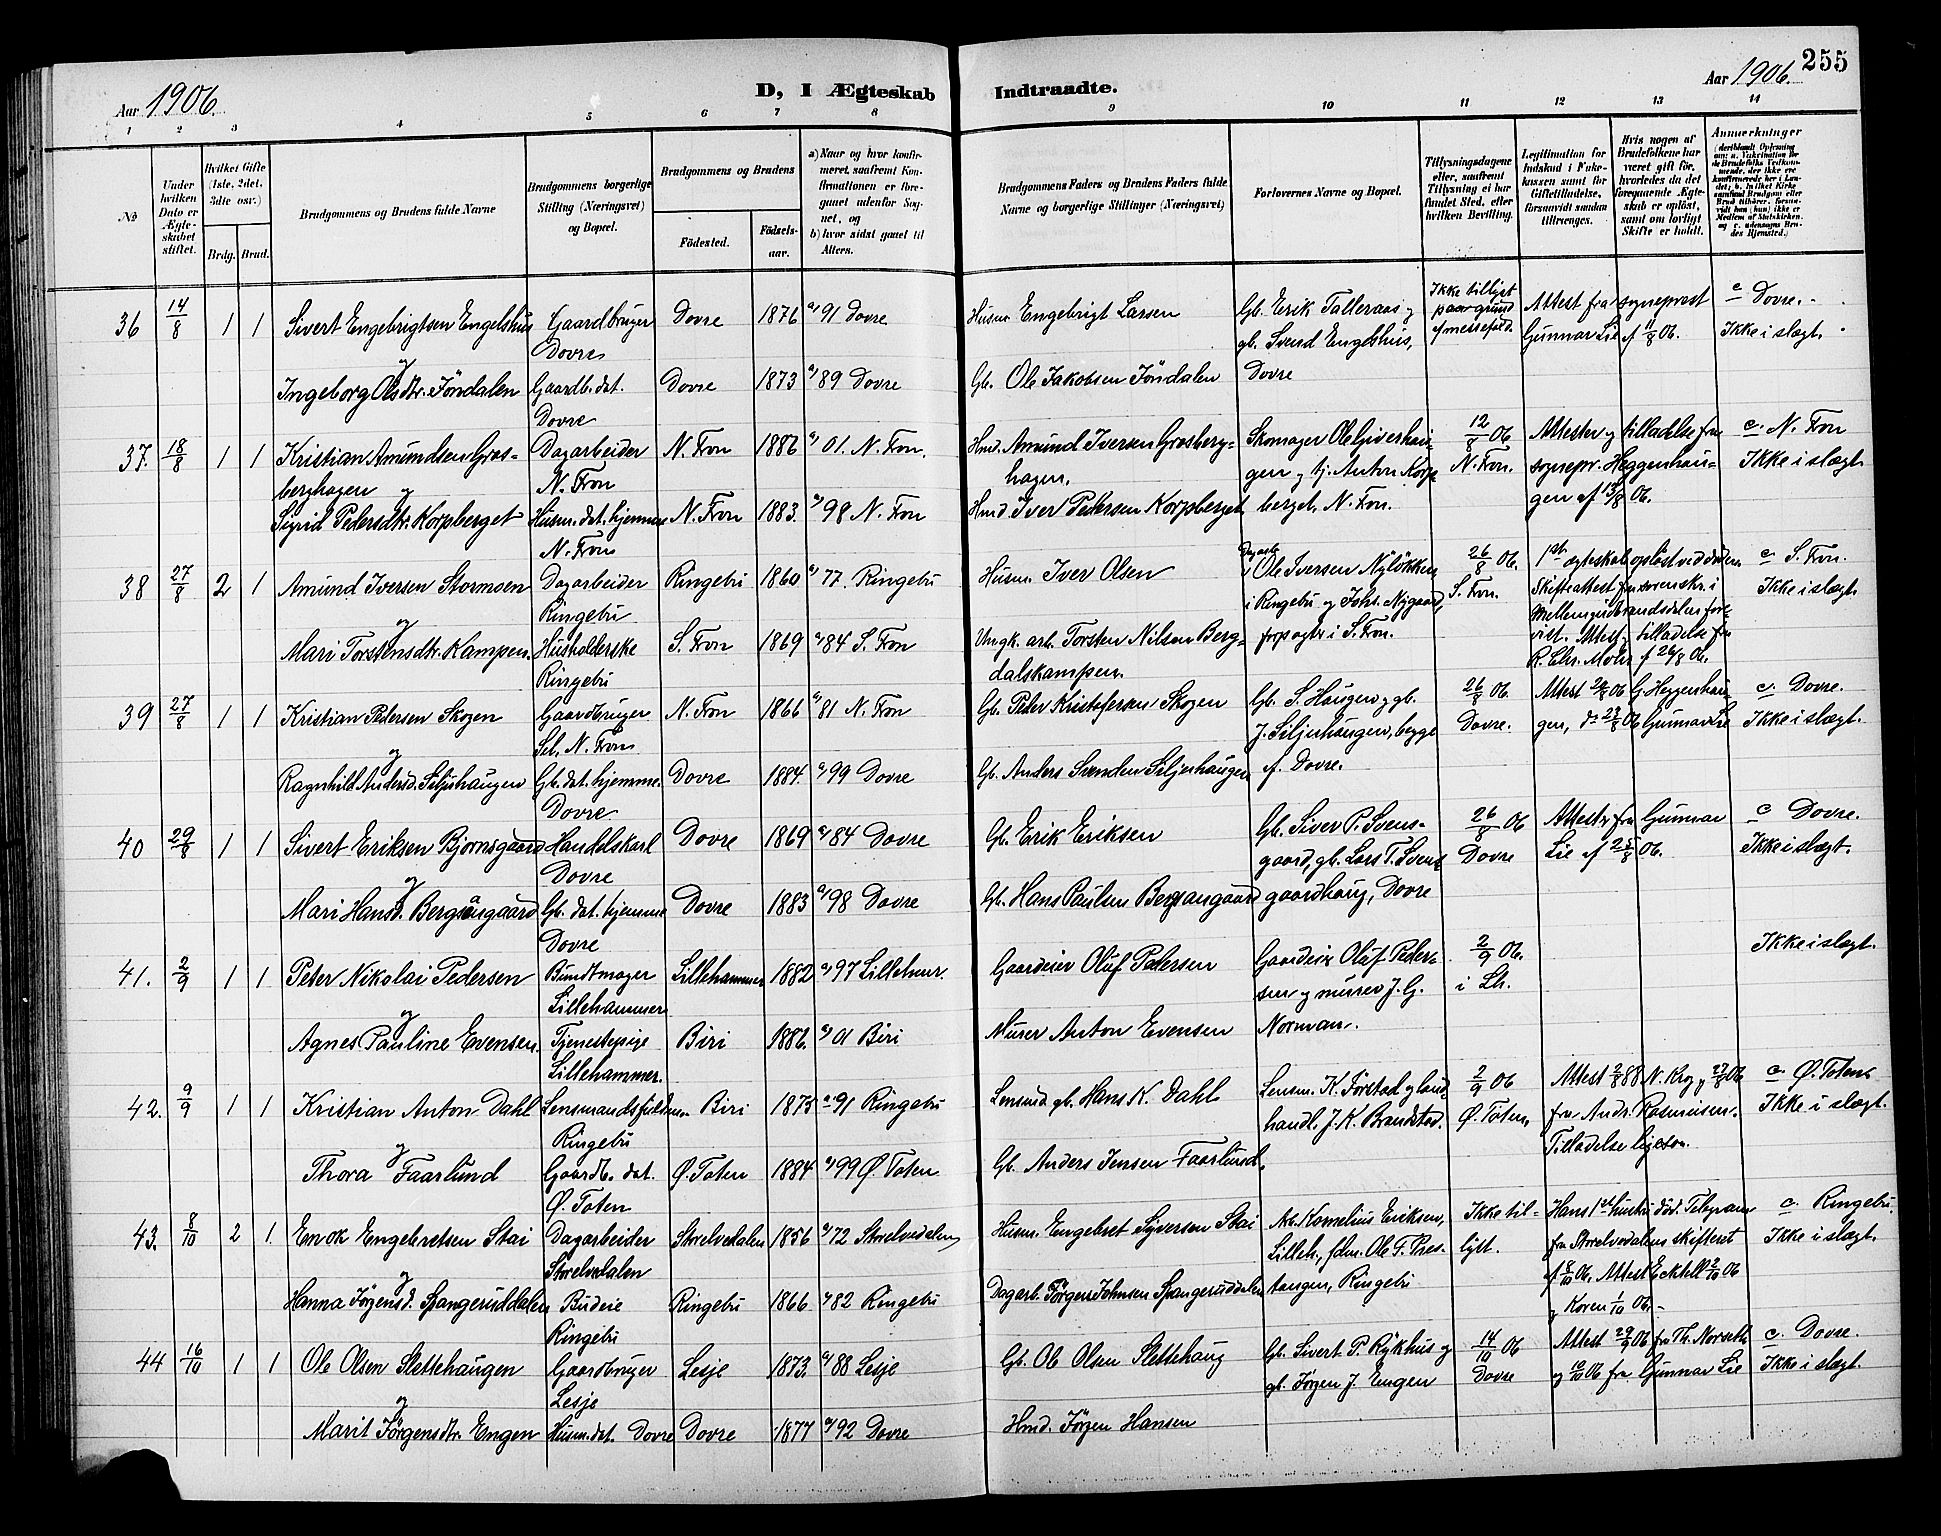 Aar 1906.
D, I Ægteskab Indtraadte.
Aar 1906.
255
1 2 3 4 5 6 7 8 9 10 11 12 13 14
No
Under hvilken Dato er Ægteskabet stiftet.
Hvilket Gifte (1ste, 2det, 3die osv.)
Brdg. Brud.
Brudgommens og Brudens fulde Navne
Brudgommens borgerlige Stilling (Næringsvei) og Bopæl.
Brudgommens og Brudens
Födested.
Födselsaar.
a) Naar og hvor konfirmeret, saafremt Konfirmationen er foregaaet udenfor Sognet, og
b) hvor sidst gaaet til Alters.
Brudgommens Faders og Brudens Faders fulde Navne og borgerlige Stillinger (Næringsvei)
Forlovernes Navne og Bopæl.
Tillysningsdagene eller, saafremt Tillysning ei har fundet Sted, efter hvilken Bevilling.
Hvis nogen af Brudefolkene har været gift før, hvorledes da det foregaaende Ægteskab er oplöst, samt om lovligt Skifte er holdt.
Anmærkninger
36 14/8 1 1 Sivert Engebrigtsen Engelshus Gaardbruger Dovre 1876 a) 91 Dovre Husm. Engebrigt Larsen Gb. Erik Talleraas og Ikke tillyst Attest fra sogneprest c Dovre.
Dovre gb. Svend Engelshus, paa grund af messefald. Gunnar Lie af 11/8 06. Ikke i slægt.
og
Ingeborg Olsdtr. Jöndalen Gaardb. dat. Dovre 1873 a) 89 Dovre Gb. Ole Jakobsen Jöndalen Dovre
Dovre
37. 18/8 1 1 Kristian Amundsen Gros- Dagarbeider N. Fron 1886 a) 01. N. Fron. Hmd. Amund Iversen Grosberg- Skomager Ole 12/8 06 Attester og tilladelse fra c. N. Fron
berghagen og N. Fron hagen. gen og tj. Anton Korp- N. Fron. sognepr. Heggenhau- Ikke i slægt
Sigrid Pedersdtr. Korpberget Husm. dat. hjemme N. Fron 1883. a) 98 N. Fron Hmd. Iver Pedersen Korpberget berget, N. Fron. gen af 13/8 06.
N. Fron
38 27/8 2 1 Amund Iversen Stormoen Dagarbeider Ringebu 1860 a) 77. Ringebu Husm. Iver Olsen Dagarb. Ole Iversen Nyløkken 26/8 06. 1ste ægteskab opløst ved döden c. S. Fron.
Ringebu i Ringebu og Johs. Nygaard, S. Fron. Skifteattest fra sorenskr. i Ikke i slægt
og Mellemgudbrandsdalen fore-
Mari Torstensdtr. Kampen. Husholderske S. Fron 1869 a) 84 S. Fron Ungk. arb. Torsten Nilsen Berg- i S. Fron. vist. Attest og tilladelse fra
Ringebu dalskampen. R. Chr. Mohr af 26/8 06.
39 27/8 1 1 Kristian Pedersen Skogen Gaardbruger N. Fron 1866 a) 81 N. Fron Gb. Peder Kristofersen Skogen Gb. S. Haugen og gb. 26/8 06 Attest 06 G. Heggenhau- c. Dovre.
Sel, N. Fron J. Siljehaugen, begge Dovre. gen, do 23/8 06 Gunnar Lie Ikke i slægt.
og
Ragnhild Andersd. Siljehaugen Gb. dat. hjemme. Dovre 1884. a) 99 Dovre Gb. Anders Svendsen Siljehaugen af Dovre.
Dovre
40 29/8 1 1 Sivert Eriksen Bjørnsgaard Handelskarl Dovre 1869 a) 84 Dovre Gb. Erik Eriksen Gb. Siver P. Svens- 26/8 06 Attest fra Gunnar c Dovre.
Dovre gaard, gb. Lars T. Svens- Dovre Lie af 25/8 06. Ikke i slægt.
og
Mari Hansd. Bergsangaard Gb. dat. hjemme Dovre 1883 a) 98 Dovre Gb. Hans Paulsen Bergsangaard gaardhaug, Dovre
Dovre
41. 2/9 1 1 Peter Nikolai Pedersen Bundtmager Lillehammer 1882 a) 97 Lilleham. Gaardeier Oluf Pedersen Gaardeier Oluf Peder- 2/9 06. Ikke i slægt.
Lillehammer sen og murer J. G. i Lh.
og
Agnes Pauline Evensen. Tjenestepige Biri 1886. a) 01 Biri Murer Anton Evensen Norman.
Lillehammer.
42. 9/9 1 1 Kristian Anton Dahl Lensmandsfuldm. Biri 1875 a) 91 Ringebu Lensmd. gb. Hans K. Dahl Lensm. K. Forstad og land- 2/9 06 Attest 88 N. Krog 06 c. Ø. Toten
Ringebu handl. J. K. Brandstad. Ø. Toten. fra Andr. Rasmussen. Ikke i slægt.
og Tilladelse ligesom.
Thora Faarlund Gaardb. dat. Ø. Toten 1884 a) 99 Ø. Toten Gb. Anders Jensen Faarlund.
Ø. Toten
43. 8/10 2 1. Enok Engebretsen Stai Dagarbeider Storelvedalen 1856 a) 72 Storelvedalen Husm. Engebret Syversen Stai Arb. Kornelius Eriksen, Ikke til- Hans 1ste hustru död. Telegram c. Ringebu.
Storelvedalen Lilleh., fdm. Ole T. Pres- lyst. fra Storelvedalens skifteret Ikke i slægt.
og af 8/10 06. Attest 06
Hanna Jørgensd. Spangruddalen Budeie Ringebu 1866. a) 82 Ringebu Dagarb. Jørgen Johnsen Spangruddalen tangen, Ringebu og Koren 1/10 06.
Ringebu
44 16/10 1 1 Ole Olsen Slettehaugen Gaardbruger Lesje 1873. a) 88 Lesje Gb. Ole Olsen Slettehaug Gb. Sivert P. Rykhus og 14/10 06 Attest 29/9 06 fra Th. Norseth c. Dovre.
Lesje gb. Jørgen J. Engen Dovre og 10/10 06 fra Gunnar Lie Ikke i slægt.
og
Marit Jørgensdtr. Engen Husm. dat. Dovre Dovre 1877 a) 92 Dovre Hmd. Jørgen Hansen